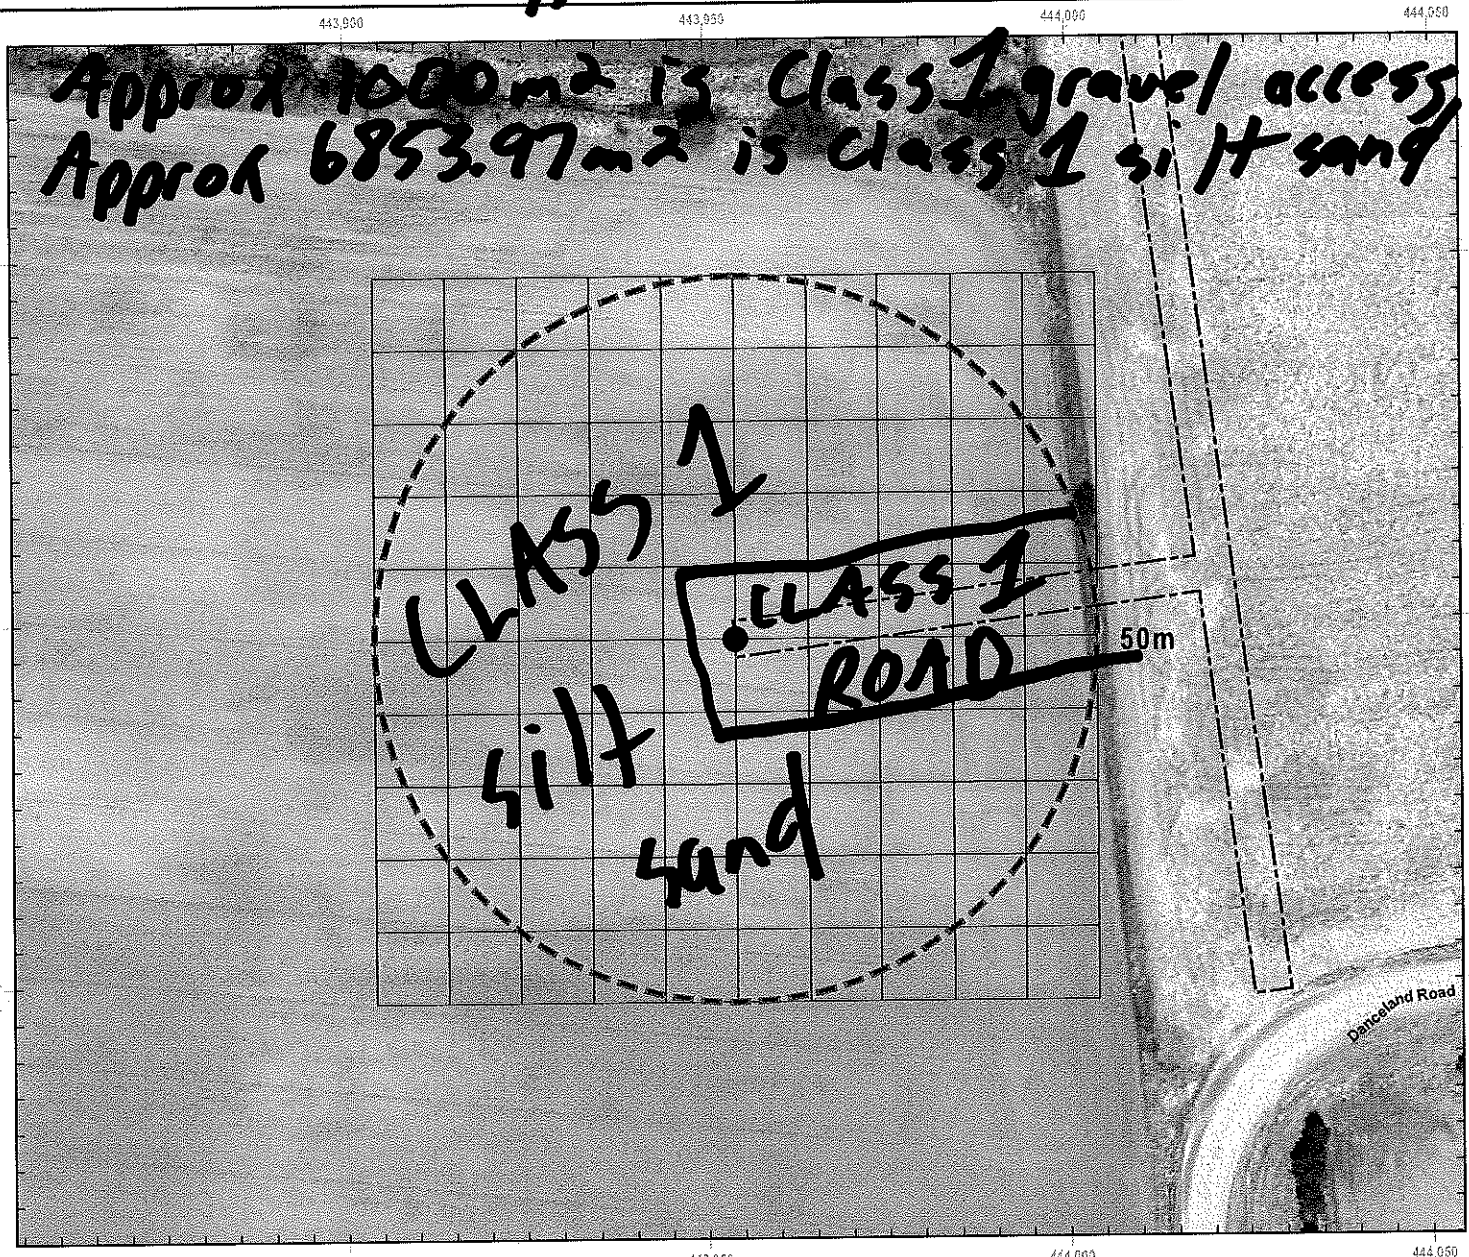 443,900 443,950 444,000 444,050
Approx 1000m² is Class 1 gravel access,
Approx 6853.97m² is class 1 silt sand
CLASS 1
CLASS 1
ROAD
50m
silt
sand
Danceland Road
444,000 444,050